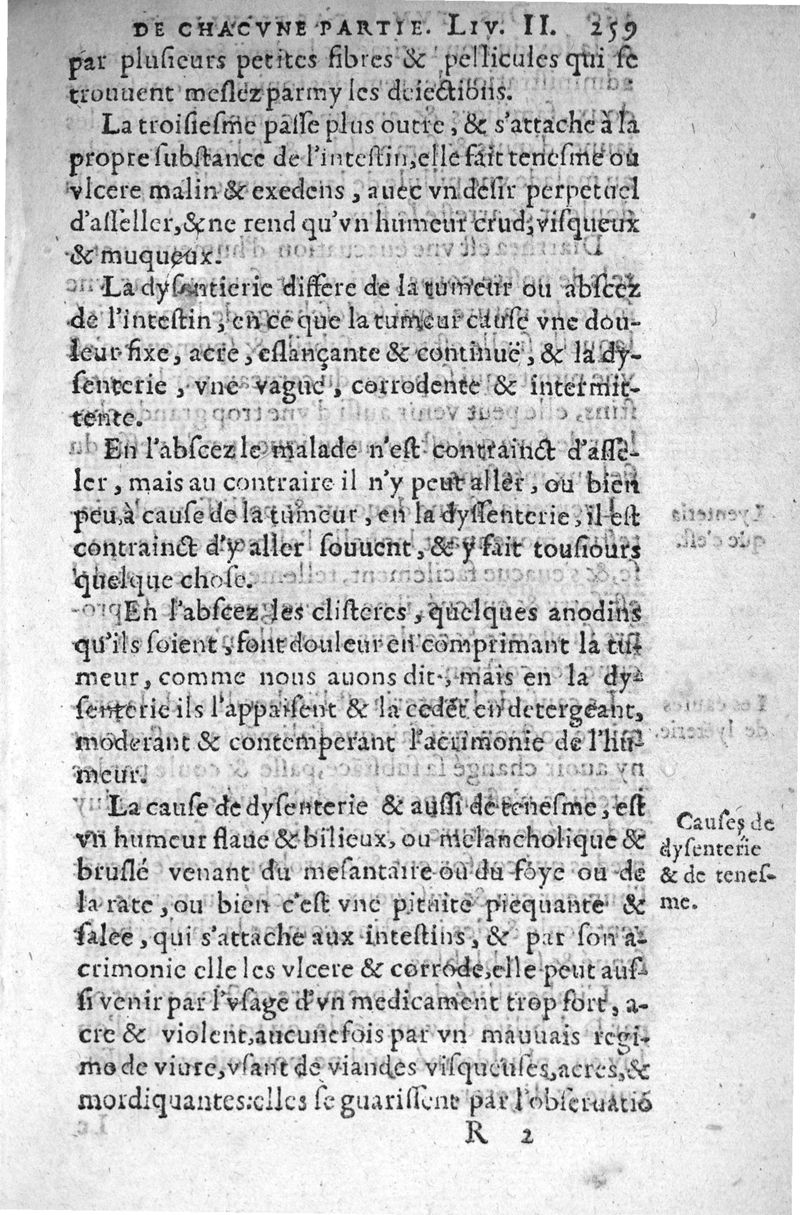 DE CHACVNE PARTIE. LIV. II. 259
par plusieurs petites fibres & pellicules qui se
trouuent meslez parmy les deiections.
La troisiesme passe plus outre, & s'attache à la
propre substance de l'intestin, elle fait tenesme ou
vlcere malin & exedens, auec vn desir perpetuel
d'asseller, & ne rend qu'vn humeur crud, visqueux
& muqueux.
La dysentierie differe de la tumeur ou abscez
de l'intestin, en ce que la tumeur cause vne dou-
leur fixe, acre, eslançante & continuë, & la dy-
senterie, vne vague, corrodente & intermit-
tente.
En l'abscez le malade n'est contrainct d'asse-
ler, mais au contraire il n'y peut aller, ou bien
peu, à cause de la tumeur, en la dyssenterie, il est
contrainct d'y aller souuent, & y fait tousiours
quelque chose.
En l'abscez les clisteres, quelques anodins
qu'ils soient, font douleur en comprimant la tu-
meur, comme nous auons dit, mais en la dy-
senterie ils l'appaisent & la cedẽt en detergeant,
moderant & contemperant l'acrimonie de l'hu-
meur.
La cause de dysenterie & aussi de tenesme, est
vn humeur flaue & bilieux, ou melancholique &
bruslé venant du mesantaire ou du foye ou de
la rate, ou bien c'est vne pituite picquante &
salee, qui s'attache aux intestins, & par son a-
crimonie elle les vlcere & corrode, elle peut aus-
si venir par l'vsage d'vn medicament trop fort, a-
cre & violent, aucunefois par vn mauuais regi-
mo de viure, vsant de viandes visqueuses, acres, &
mordiquantes: elles se guarissent par l'obseruatiõ
Causes de
dysenterie
& de tenes-
me.
R 2